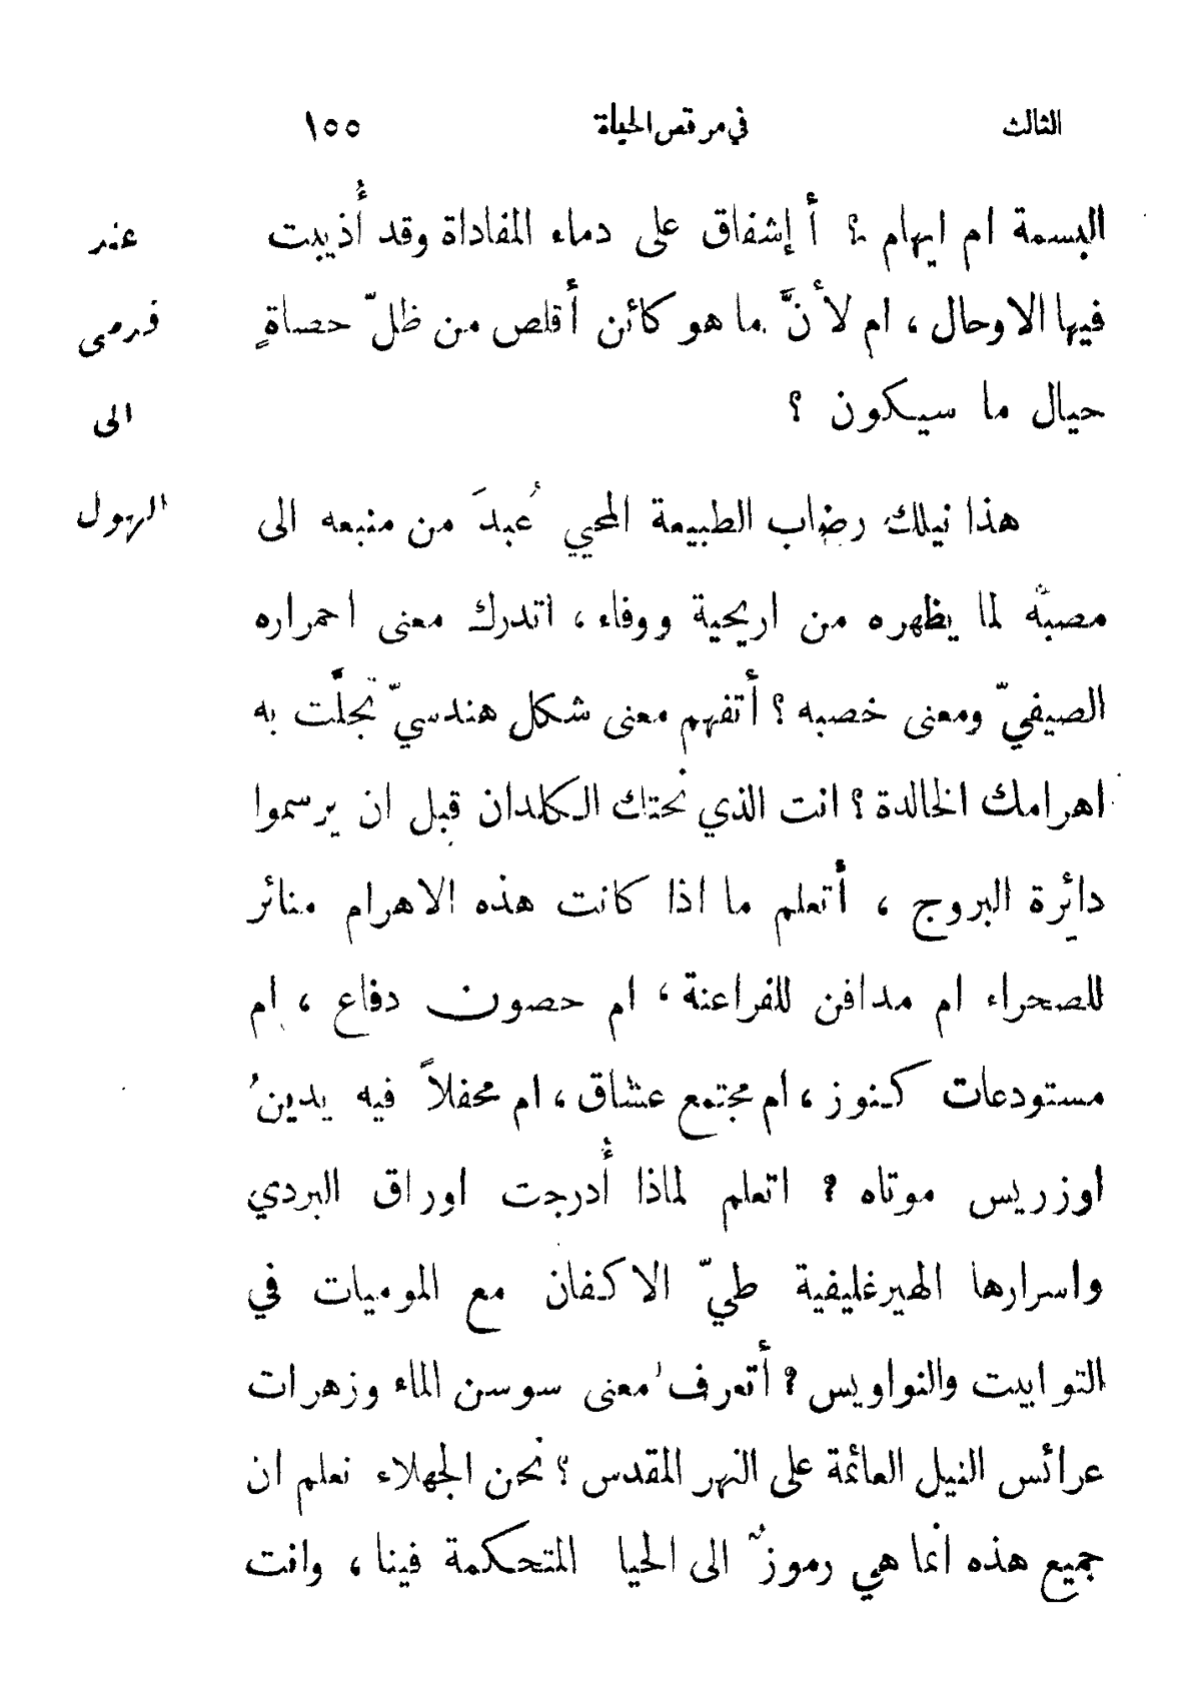 الثالث في مرقص الحياة ١٥٥
البسمة ام ايهام ؟ أ إشفاق على دماء المفاداة وقد أُذيبت
فيها الاوحال ، ام لأنَّ ما هو كائن أقلص من ظلّ حصاةٍ
حيال ما سيكون ؟
هذا نيلك رضاب الطبيعة المحيي عُبدَ من منبعه الى
مصبّه لما يظهره من اريحية ووفاء ، اتدرك معنى احمراره
الصيفيّ ومعنى خصبه ؟ أتفهم معنى شكل هندسيّ تجلَّت به
اهرامك الخالدة ؟ انت الذي نحتك الكلدان قبل ان يرسموا
دائرة البروج ، أتعلم ما اذا كانت هذه الاهرام منائر
للصحراء ام مدافن للفراعنة ، ام حصون دفاع ، ام
مستودعات كنوز ، ام مجتمع عشاق ، ام محفلاً فيه يدينُ
اوزريس موتاه ؟ اتعلم لماذا أُدرجت اوراق البردي
واسرارها الهيرغليفية طيّ الاكفان مع الموميات في
التوابيت والنواويس ؟ أتعرف معنى سوسن الماء وزهرات
عرائس النيل العائمة على النهر المقدس ؟ نحن الجهلاء نعلم ان
جميع هذه انما هي رموزٌ الى الحيا المتحكمة فينا ، وانت
عند
قدمي
ابي
الهول